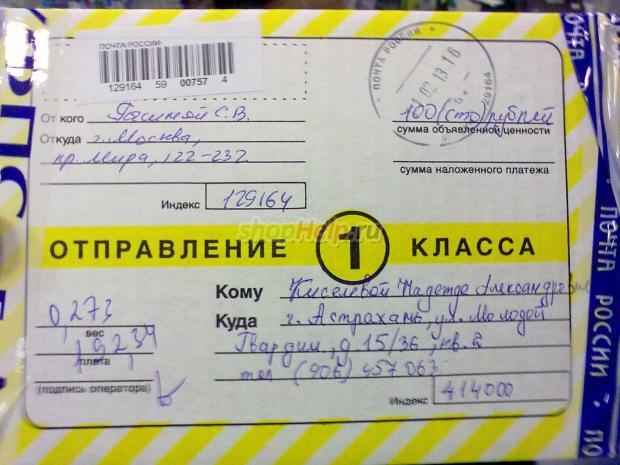 ПОЧТА РОССИИ
129164 59 00757 4
ПОЧТА РОССИИ
02 13 16
129164
От кого С.В.
Откуда г. Москва,
пр. Мира, 122-237
Индекс 129164
100 (сто) рублей
сумма объявленной ценности
сумма наложенного платежа
shopHelp.ru
ОТПРАВЛЕНИЕ 1 КЛАССА
0,273
вес
192,34
плата
(подпись оператора)
Кому Киселевой Надежде Александровне
Куда г. Астрахань, ул. Молодой
Гвардии, д 15/36, кв. 2
тел (906) 457063
Индекс 414000
ПОЧТА РОССИИ · ПО